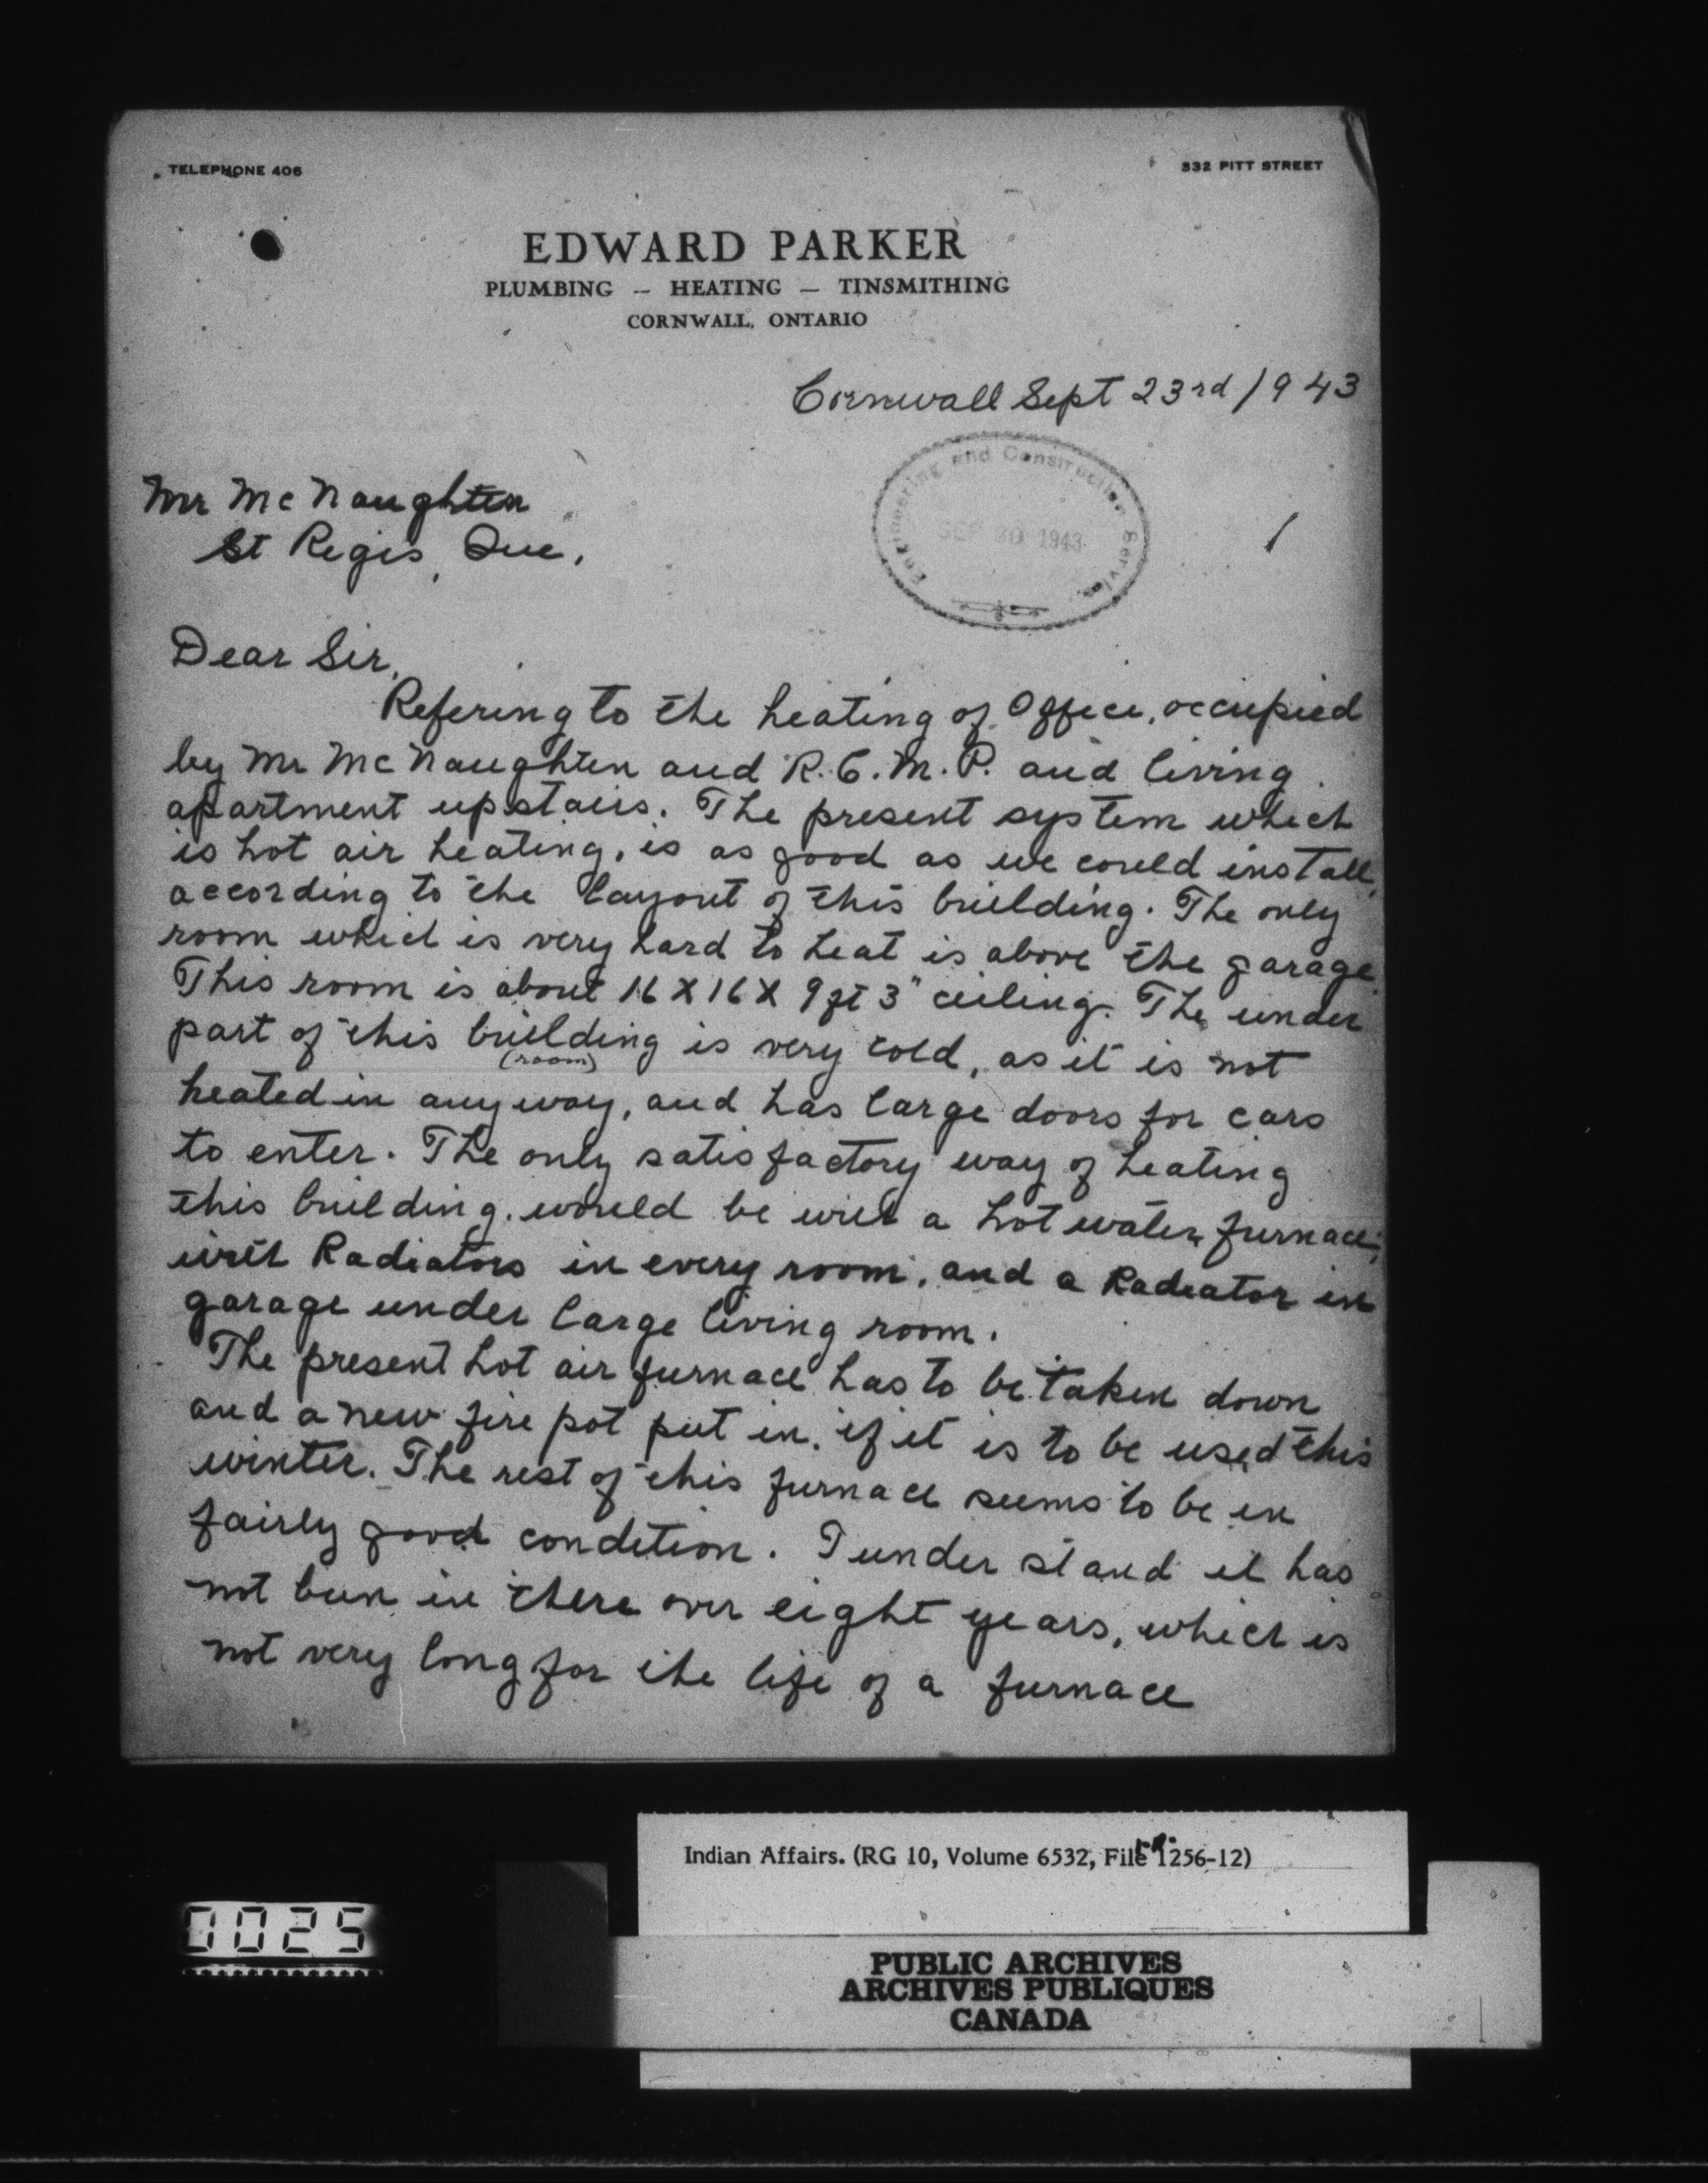 TELEPHONE 406
332 PITT STREET
EDWARD PARKER
PLUMBING -- HEATING — TINSMITHING
CORNWALL, ONTARIO
Cornwall Sept 23rd / 9 43
Engineering and Construction Service
SEP 30 1943
Mr McNaughten
St Regis, Que.
1
Dear Sir,
Refering to the heating of Office, occupied
by Mr McNaughten and R.C.M.P. and living
apartment upstairs. The present system which
is hot air heating, is as good as we could install,
according to the layout of this building. The only
room which is very hard to heat is above the garage.
This room is about 16 X 16 X 9ft 3" ceiling. The under
part of this building is very cold, as it is not
(room)
heated in anyway, and has large doors for cars
to enter. The only satisfactory way of heating
this building, would be with a hot water furnace,
with Radiators in every room, and a Radiator in
garage under large living room.
The present hot air furnace has to be taken down
and a new fire pot put in, if it is to be used this
winter. The rest of this furnace seems to be in
fairly good condition. I under stand it has
not been in there over eight years, which is
not very long for the life of a furnace
Indian Affairs. (RG 10, Volume 6532, File 1256-12)
0025
PUBLIC ARCHIVES
ARCHIVES PUBLIQUES
CANADA